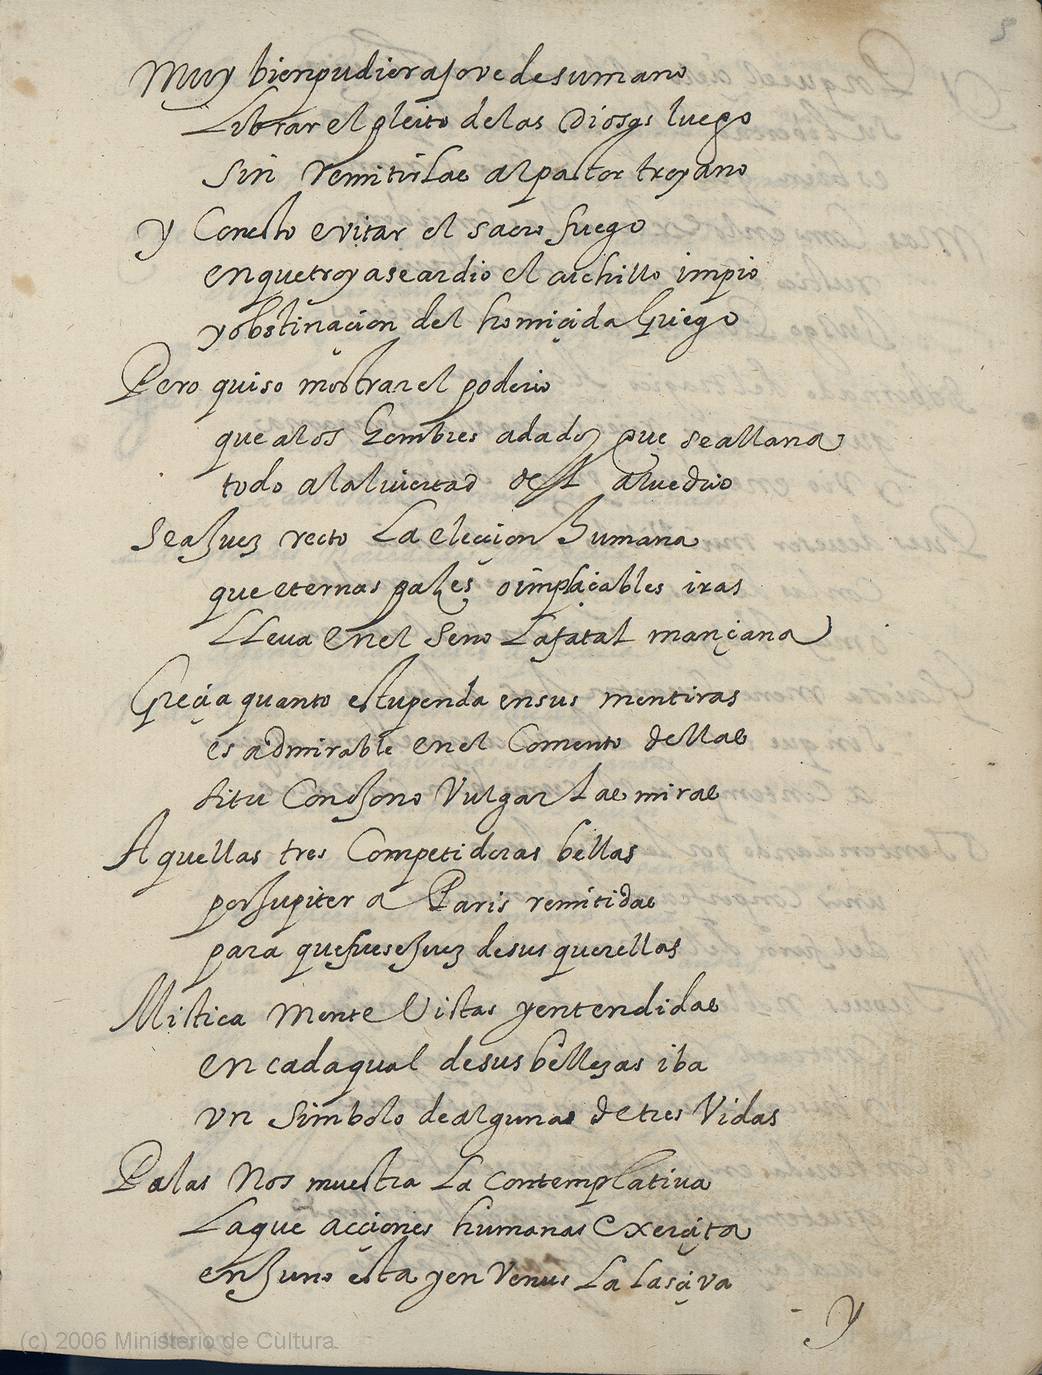 5
Muy bien pudiera Jove de su mano
Librar el pleito de las Diosas luego
Sin remitirlae al pastor troyano
y Con esto evitar el sacro fuego
en que troya se ardio el cuchillo impio
y obstinaçion del homiçida Griego
Pero quiso mostrar el poderio
que a los hombres a dado, que se allana
todo a la livertad del alvedrio
Sea Juez recto La elecçion humana
que eternas pazes o implaçables iras
LLeva en el Seno La fatal mançana
Greçia quanto estupenda en sus mentiras
es admirable en el Comento dellae
si tu Con Jono Vulgar Lae mirae
Aquellas tres Competidoras bellas
por Jupiter a Paris remitidae
para que fuese Juez de sus querellas
Mistica mente Vistas y entendidae
en cada qual de sus bellezas iba
vn Simbolo de algunas de tres Vidas
Palas nos muestra La Contemplativa
La que acçiones humanas Exerçita
en Juno esta y en Venus La lasçiva
y
(c) 2006 Ministerio de Cultura